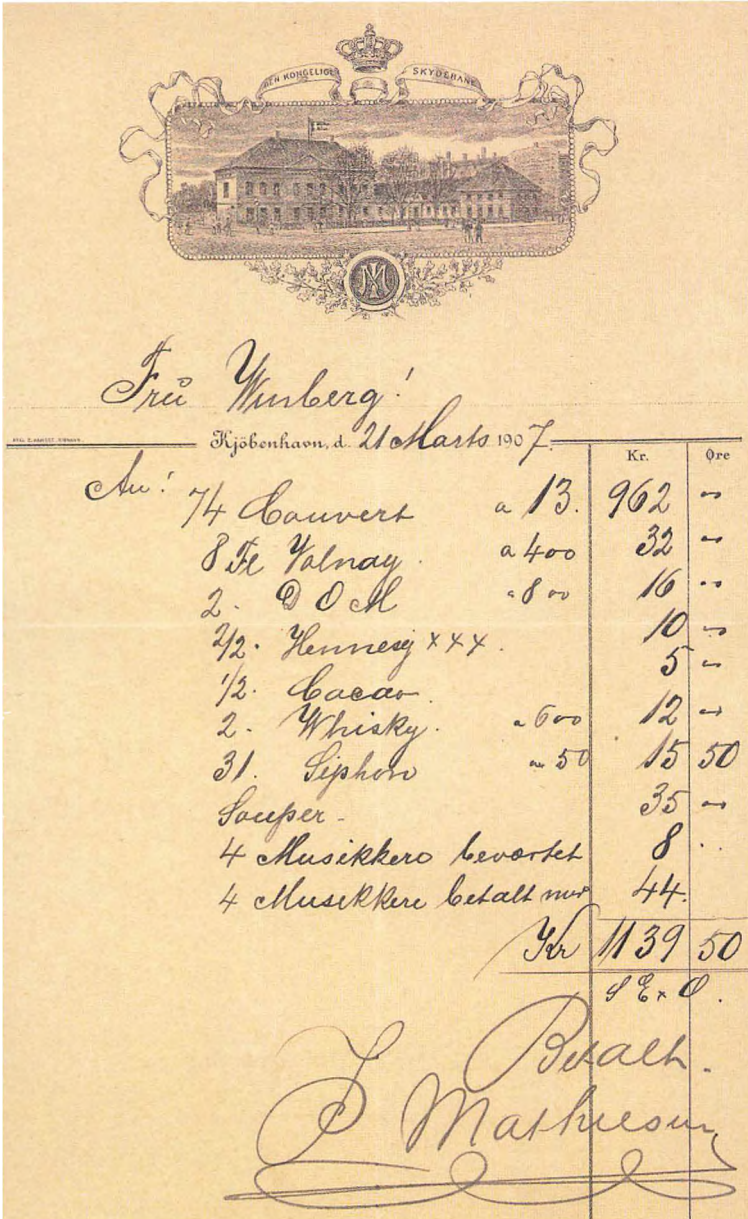 DEN KONGELIGE SKYDEBANE
Fru Winberg!
Kjöbenhavn, d. 21 Marts 1907.
Kr. Øre
An: 74 Couvert a 13. 962 "
8 Fl Volnay. a 400 32 "
2. D O M " 800 16 "
2/2. Hennesy xxx. 10 "
1/2. Cacao. 5 "
2. Whisky. " 600 12 "
31. Siphon " 50 15 50
Souper - 35 "
4 Musikkere beværtet 8 ..
4 Musikkere betalt med 44.
Kr 1139 50
S E & O.
Betalt.
P Mathiesen